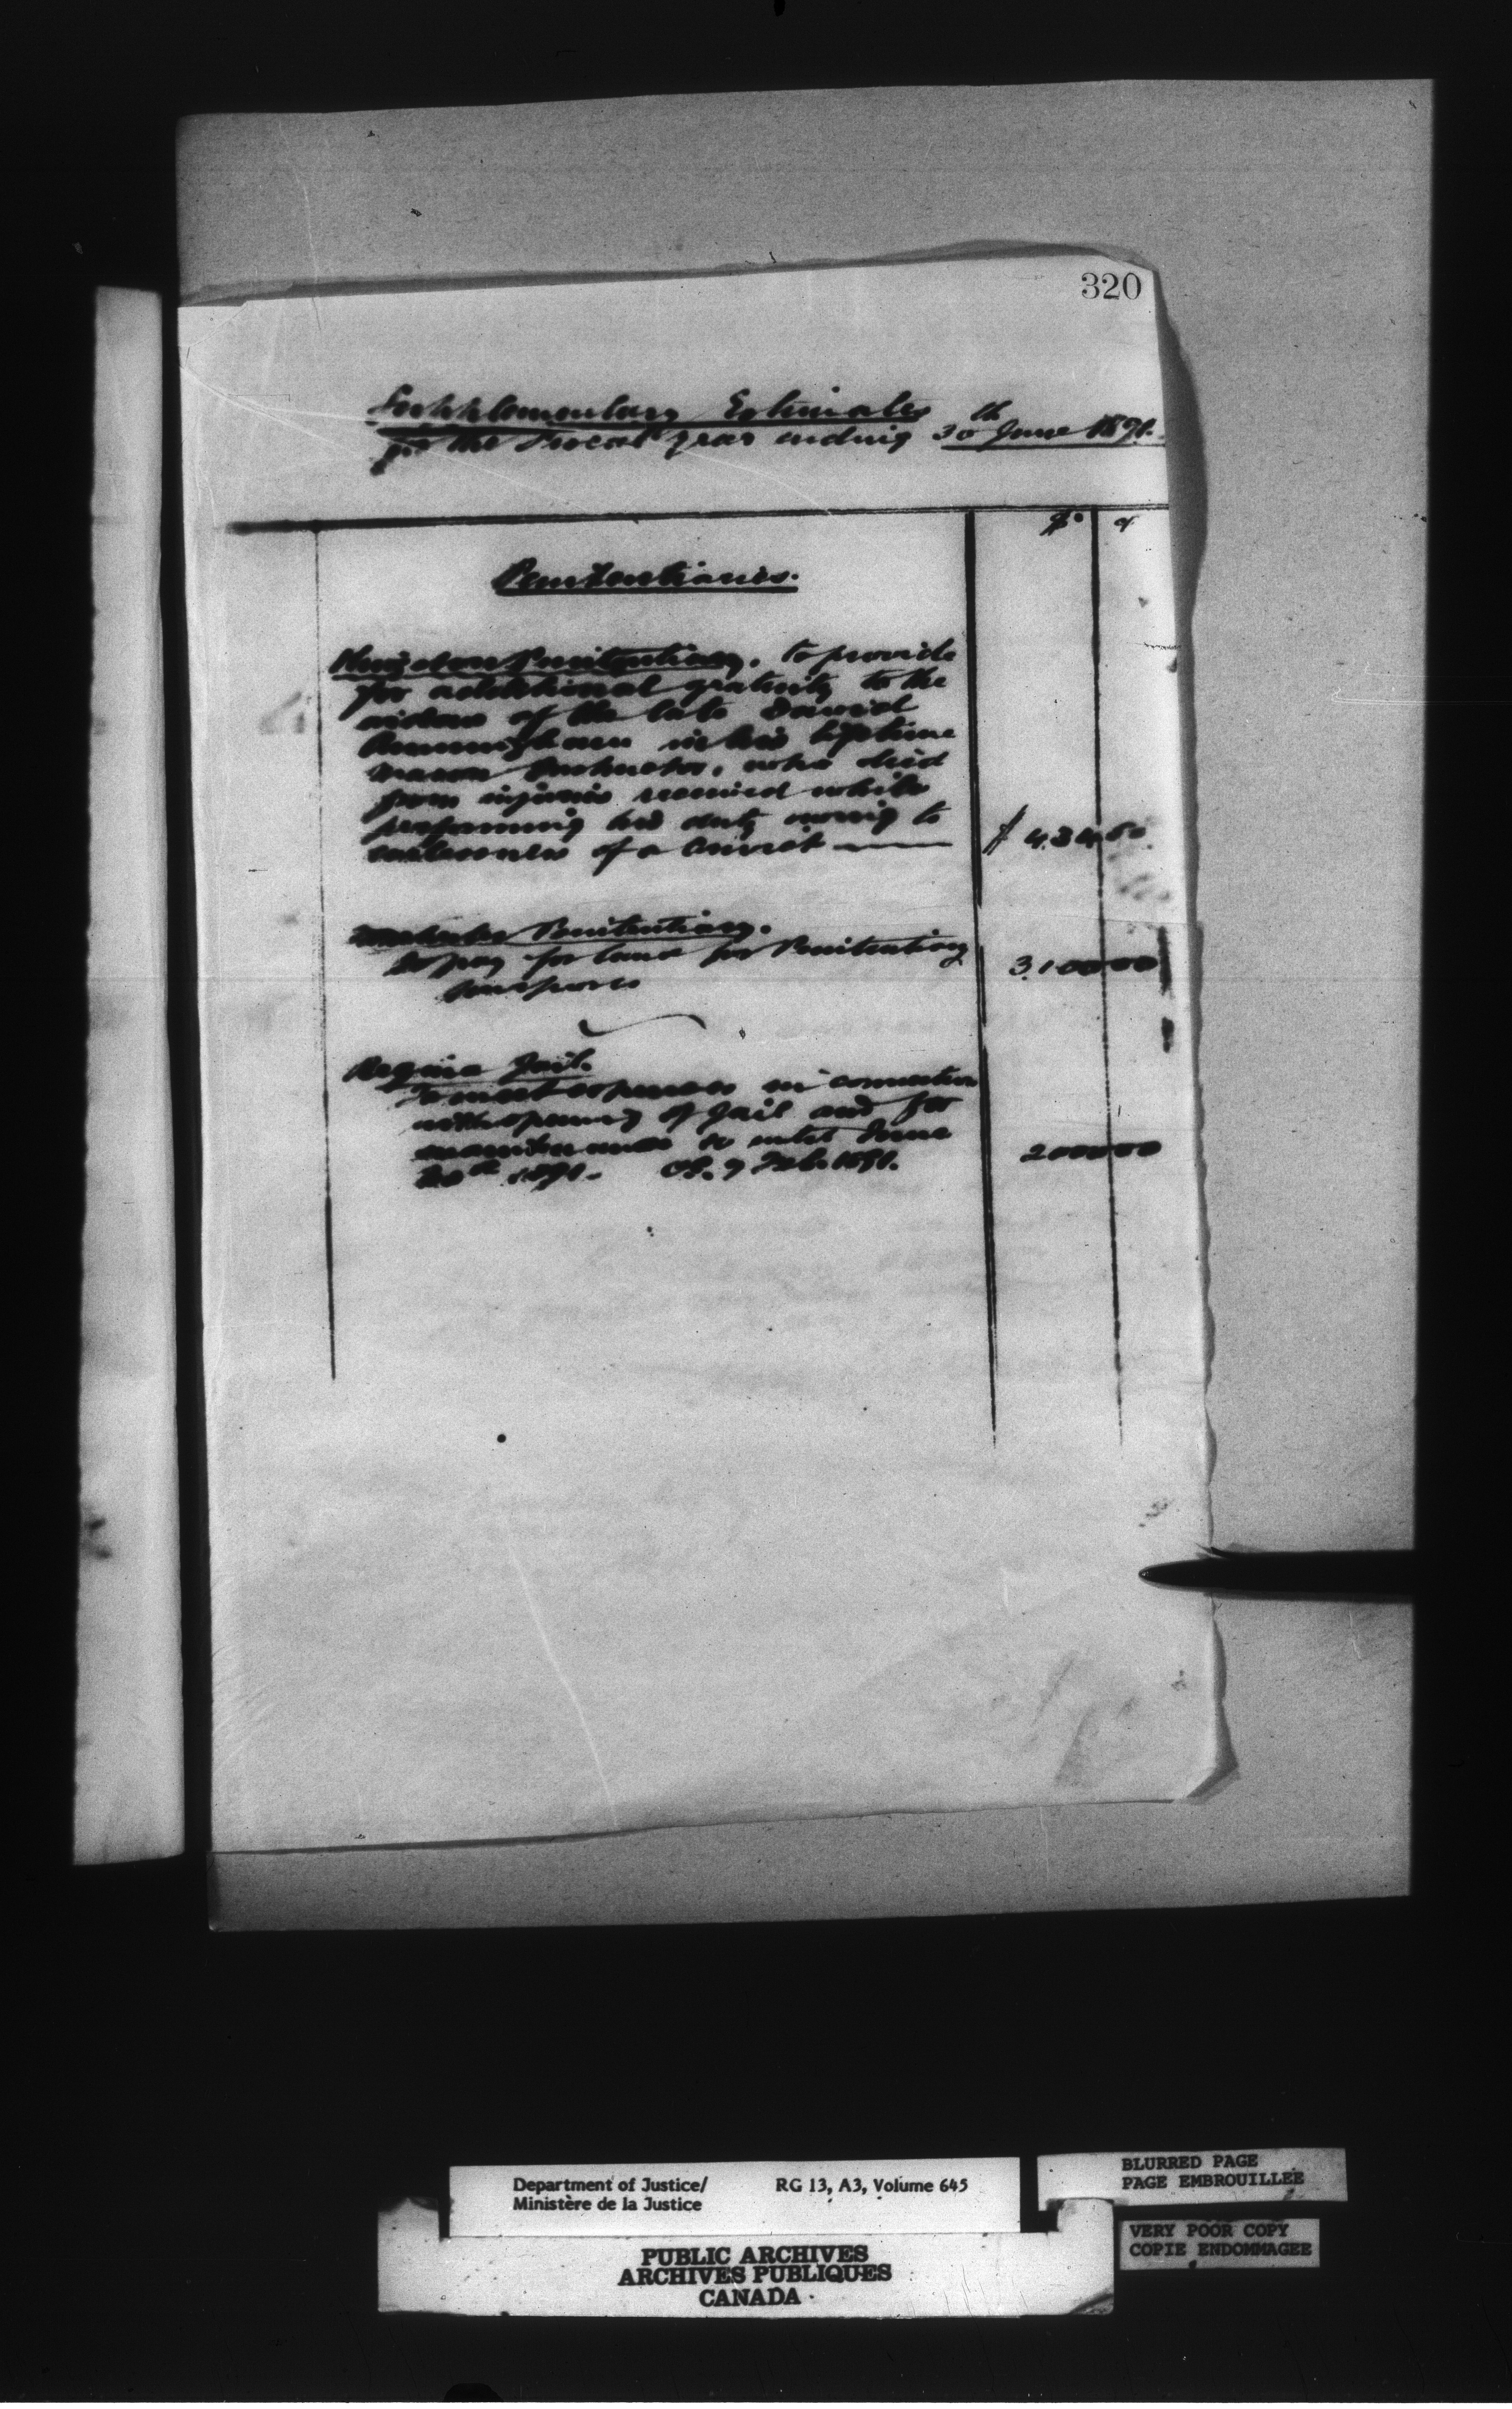 320
Supplementary Estimates
for the Fiscal year ending 30th June 1891.
$ c
Penitentiaries.
Kingston Penitentiary. To provide
for additional gratuity to the
widow of the late David
Cunningham in his lifetime
Mason Instructor, who died
from injuries received while
performing his duty owing to
carelessness of a Convict $ 434 60
Penitentiary.
To pay for land for Penitentiary
purposes 3100 00
Regina Jail.
To meet expenses in connection
with opening of Jail and for
maintenance to until June
30th 1891. O.C. 7 Feb. 1891. 2000 00
Department of Justice/ RG 13, A3, Volume 645
Ministère de la Justice
BLURRED PAGE
PAGE EMBROUILLÉE
VERY POOR COPY
COPIE ENDOMMAGEE
PUBLIC ARCHIVES
ARCHIVES PUBLIQUES
CANADA